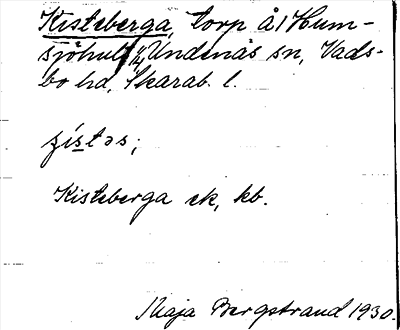 Kisteberga, torp å Hum-
sjöhult ½, Undenäs sn, Vads-
bo hd, Skarab. l.
Kisteberga ek, kb.
Maja Bergstrand 1930.